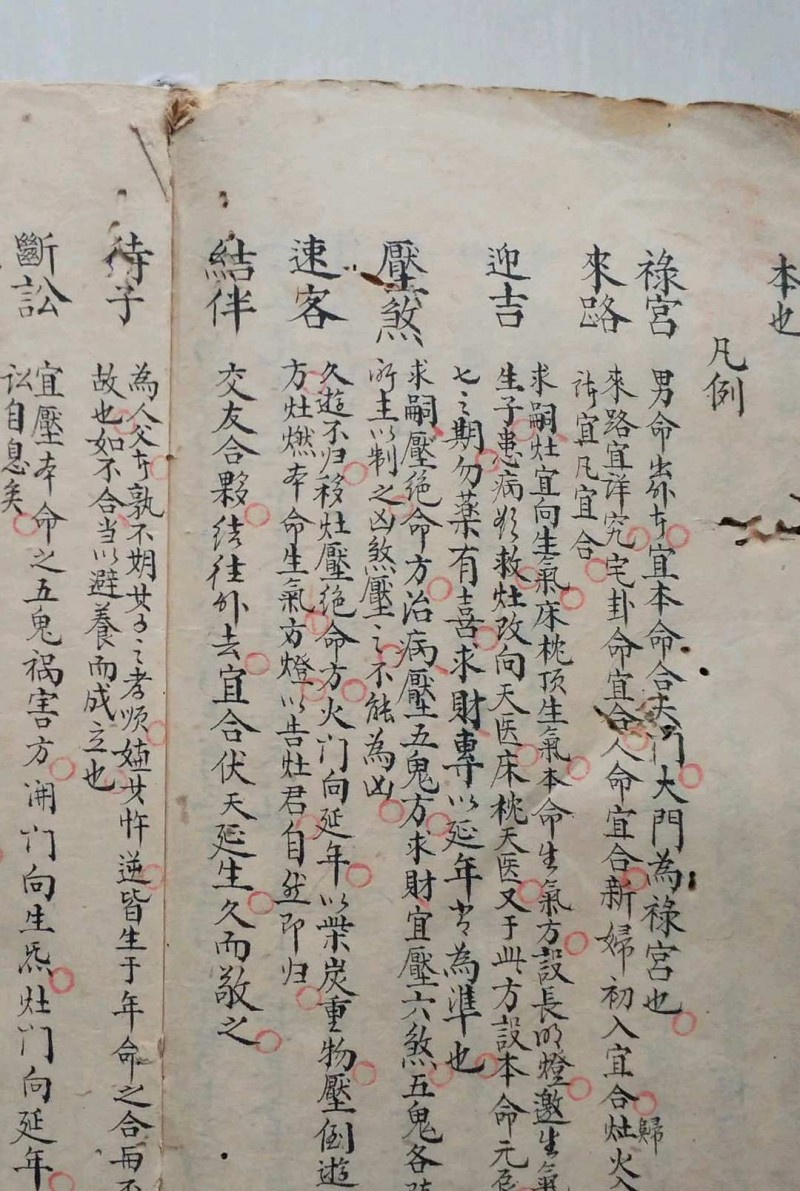 本也
凡例
祿宮 男命出外者宜本命合大門大門為祿宮也
來路 來路宜詳究宅卦命宜合人命宜合新婦初入宜合灶火
歸
許宜凡宜合
迎吉 求嗣灶宜向生氣床枕顶生氣本命生氣方設長明燈邀生氣
生子患病欲救灶改向天医床枕天医又于此方設本命元
七之期勿藥有喜求財專以延年為準也
壓煞 求嗣壓绝命方治病壓五鬼方求財宜壓六煞五鬼各
所主以制之凶煞壓之不能為凶
速客 久遊不归移灶壓绝命方火门向延年以柴炭重物壓倒遊
方灶燃本命生氣方燈以告灶君自然即归
結伴 交友合夥结往外去宜合伏天延生久而敬之
待子 為人父者孰不期女子之孝顺女忤逆皆生于年命之合與不
故也如不合当以避養而成立也
斷訟 宜壓本命之五鬼祸害方開门向生炁灶门向延年
讼自息矣